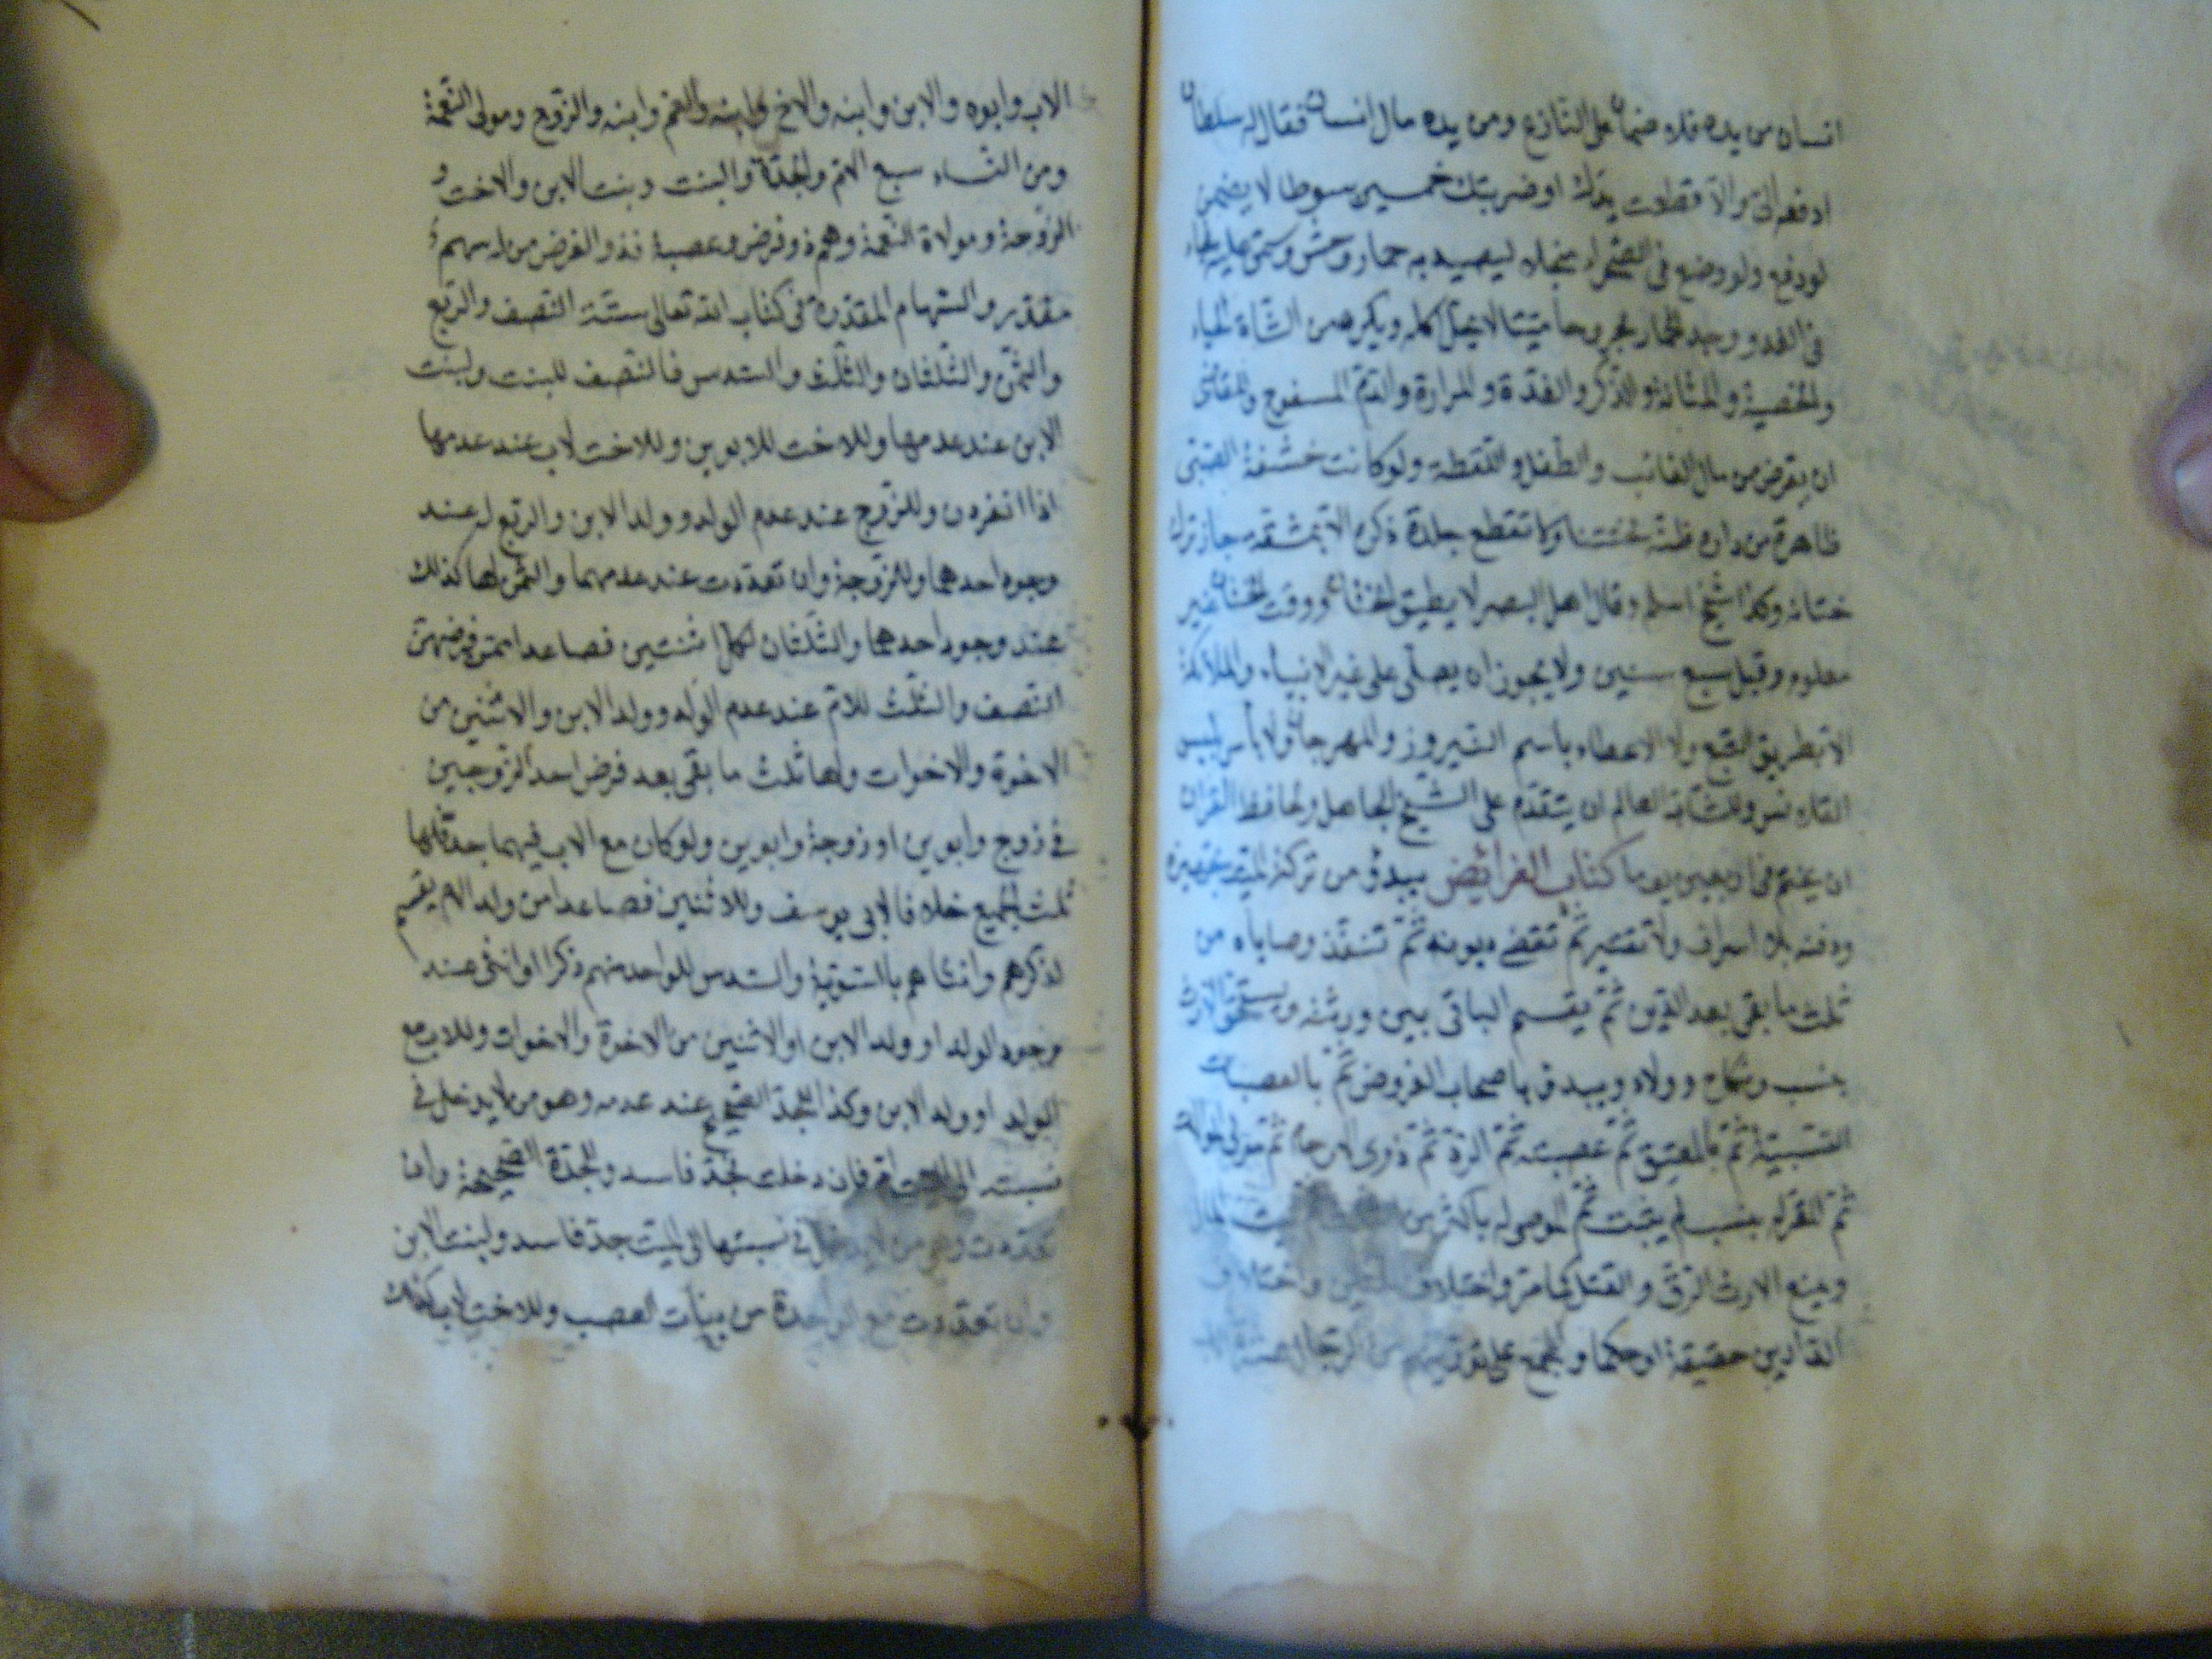 انسان من يده فلا ضمان على النازع ومن يده مال انسان فقال له سلطان
ادفعه الى والا قطعت يدك او ضربتك خمسين سوطا لا يضمن
لو دفع ولو وضع في الصحراء منجلا ليصيد به حمار وحش وسمى عليه فجاء
في الغد ووجد الحمار مجروحا ميتا لا يحل اكله ويكره من الشاة الحياء
والخصية والمثانة والذكر والغدة والمرارة والدم المسفوح وللقاضى
ان يقرض من مال الغائب والطفل واللقطة ولو كانت حشفة الصبى
ظاهرة من راه ظنه مختتنا ولا تقطع جلدة ذكره الا بمشقة جاز ترك
ختانه وكذا شيخ اسلم وقال اهل البصر لا يطيق الختان ووقت الختان غير
معلوم وقيل سبع سنين ولا يجوز ان يصلى على غير الانبياء والملائكة
الا بطريق التبع ولا الاعطاء باسم النيروز والمهرجان ولا بأس بلبس
القلانس وللشاب العالم ان يتقدم على الشيخ الجاهل ولحافظ القران
ان يختم في اربعين يوما كتاب الفرائض يبدؤ من تركة الميت بتجهيزه
ودفنه بلا اسراف ولا تقتير ثم تقضى ديونه ثم تنفذ وصاياه من
ثلث ما بقى بعد الدين ثم يقسم الباقى بين ورثته ويستحق الارث
بنسب ونكاح وولاء ويبدؤ باصحاب الفروض ثم بالعصبات
النسبية ثم بالمعتق ثم عصبته ثم الرد ثم ذوى الارحام ثم مولى الموالاة
ثم المقر له بنسب لم يثبت ثم الموصى له باكثر من بيت المال
ويمنع الارث الرق والقتل كما مر واختلاف واختلاف
الدارين حقيقة او حكما والمجمع على توريثهم من الرجال عشرة
الاب وابوه والابن وابنه والاخ وابنه والعم وابنه والزوج ومولى النعمة
ومن النساء سبع الام والجدة والبنت وبنت الابن والاخت و
الزوجة ومولاة النعمة وهم ذو فرض وعصبة فذو الفرض من له سهم
مقدر والسهام المقدرة في كتاب الله تعالى ستة النصف والربع
والثمن والثلثان والثلث والسدس فالنصف للبنت ولبنت
الابن عند عدمها وللاخت للابوين وللاخت لاب عند عدمها
اذا انفردن وللزوج عند عدم الولد وولد الابن والربع له عند
وجود احدهما وللزوجة وان تعددت عند عدمهما والثمن لها كذلك
عند وجود احدهما والثلثان لكل اثنتين فصاعدا ممن فرضهن
النصف والثلث للام عند عدم الولد وولد الابن والاثنين من
الاخوة والاخوات ولها ثلث ما بقى بعد فرض احد الزوجين
في زوج وابوين او زوجة وابوين ولو كان مع الاب فيهما جد فلها
ثلث الجميع خلافا لابى يوسف وللاثنين فصاعدا من ولد الام يقسم
لذكرهم وانثاهم بالسوية والسدس للواحد منهم ذكرا او انثى عند
وجود الولد او ولد الابن او الاثنين من الاخوة والاخوات وللاب مع
الولد او ولد الابن وكذا للجد الصحيح عند عدمه وهو من لا يدخل في
نسبته الى الميت ام فان دخلت فجد فاسد وللجدة الصحيحة وان
تعددت وهي من لا يدخل في نسبتها الى الميت جد فاسد ولبنت الابن
وان تعددت مع الواحدة من بنات الصلب وللاخت لاب كذلك